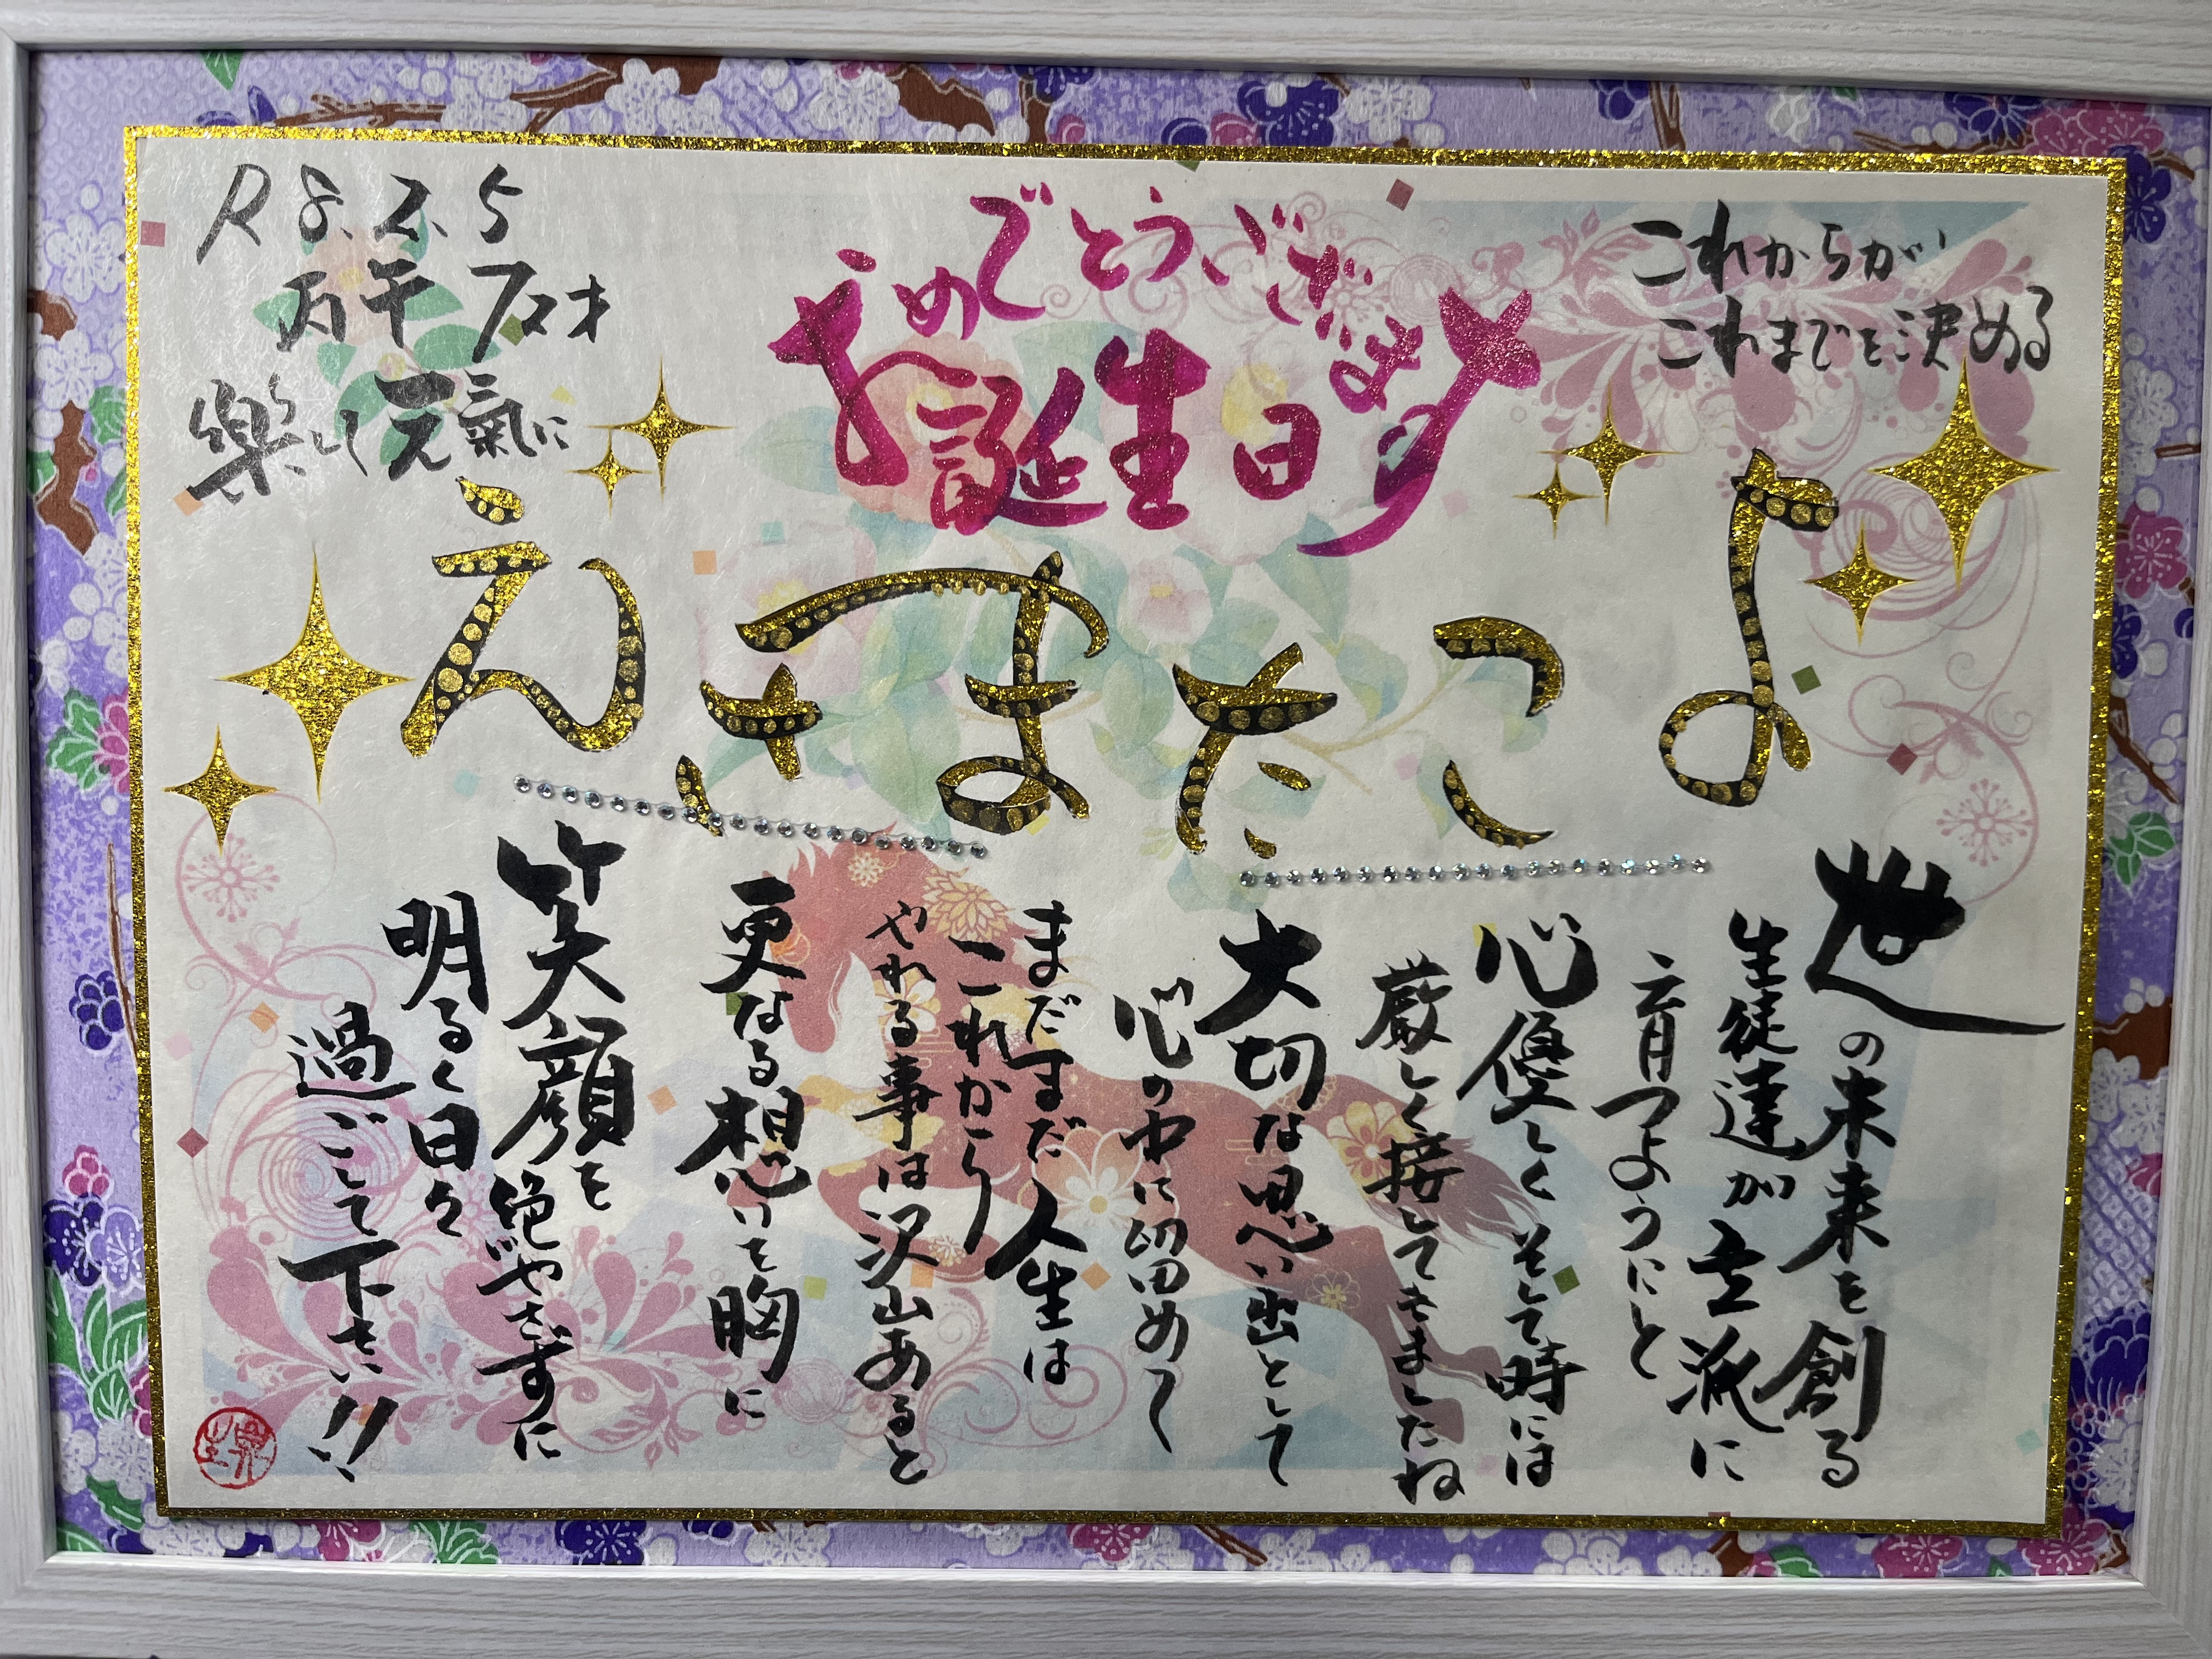 これからが
これまでを決める
おめでとうございます
誕生日
R 8. 2. 5
丙午 72才
楽しく元氣に
よこたまさえ
世の未来を創る
生徒達が立派に
育つようにと
心優しくそして時には
厳しく接してきましたね
大切な思い出として
心の中に留めて
まだまだ人生は
これから
やれる事は沢山あると
更なる想いを胸に
笑顔を絶やさずに
明るく日々
過ごして下さい!!